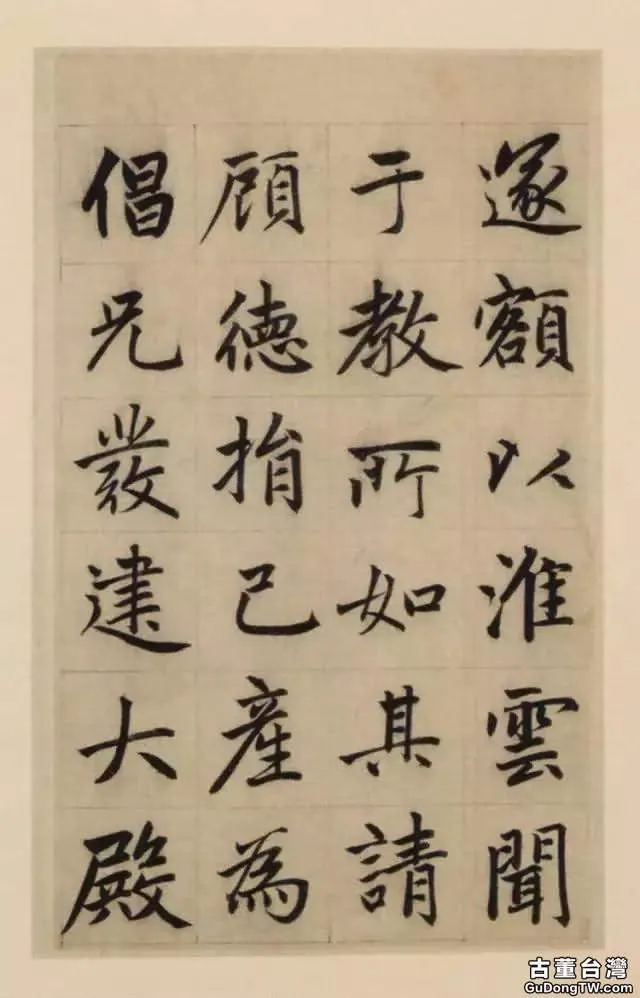 遂額以淮雲聞
于教所如其請
顧德捐己產為
倡兄發建大殿
古董台灣
GuDongTW.com